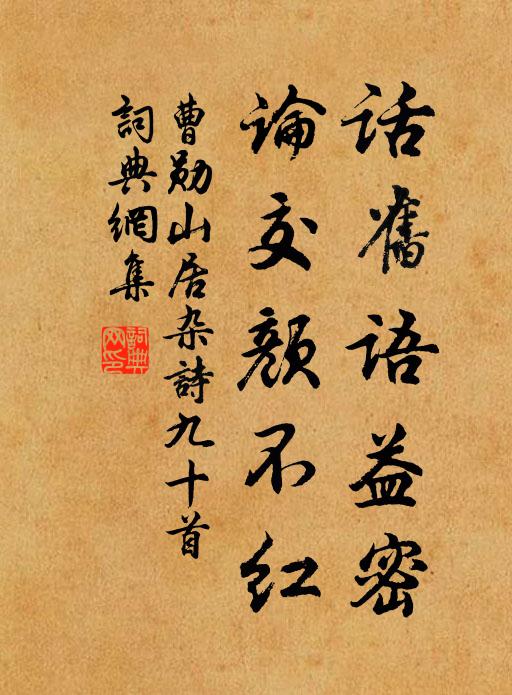 话舊语益密
论交颜不红
曹勋山居杂诗九十首
词典網集
詞典网印